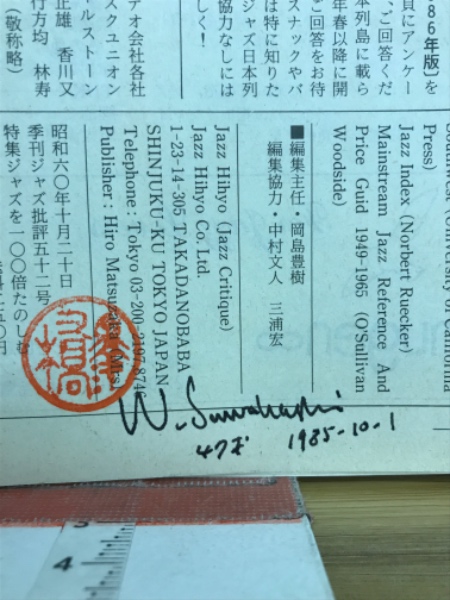 86年版〕を
員にアンケー
、ご回答くだ
本列島に載ら
年春以降に開
ご回答をお待
スナックやバ
は特に知りた
ジャズ日本列
協力なしには
しく！
デオ会社各社
スクユニオン
ールストーン
正雄 香川又
行方均 林寿
（敬称略）
Press)
Jazz Index (Norbert Ruecker)
Mainstream Jazz Reference And
Price Guid 1949-1965 (O'Sullivan
Woodside)
■編集主任・岡島豊樹
編集協力・中村文人 三浦宏
Jazz Hihyo (Jazz Critique)
Jazz Hihyo Co. Ltd.
1-23-14-305 TAKADANOBABA
SHINJUKU-KU TOKYO JAPAN
Telephone : Tokyo 03-200
Publisher : Hiro Mats
昭和六〇年十月二十日
季刊ジャズ批評五十二号
特集ジャズを一〇〇倍たのしむ
1985-10-1
4